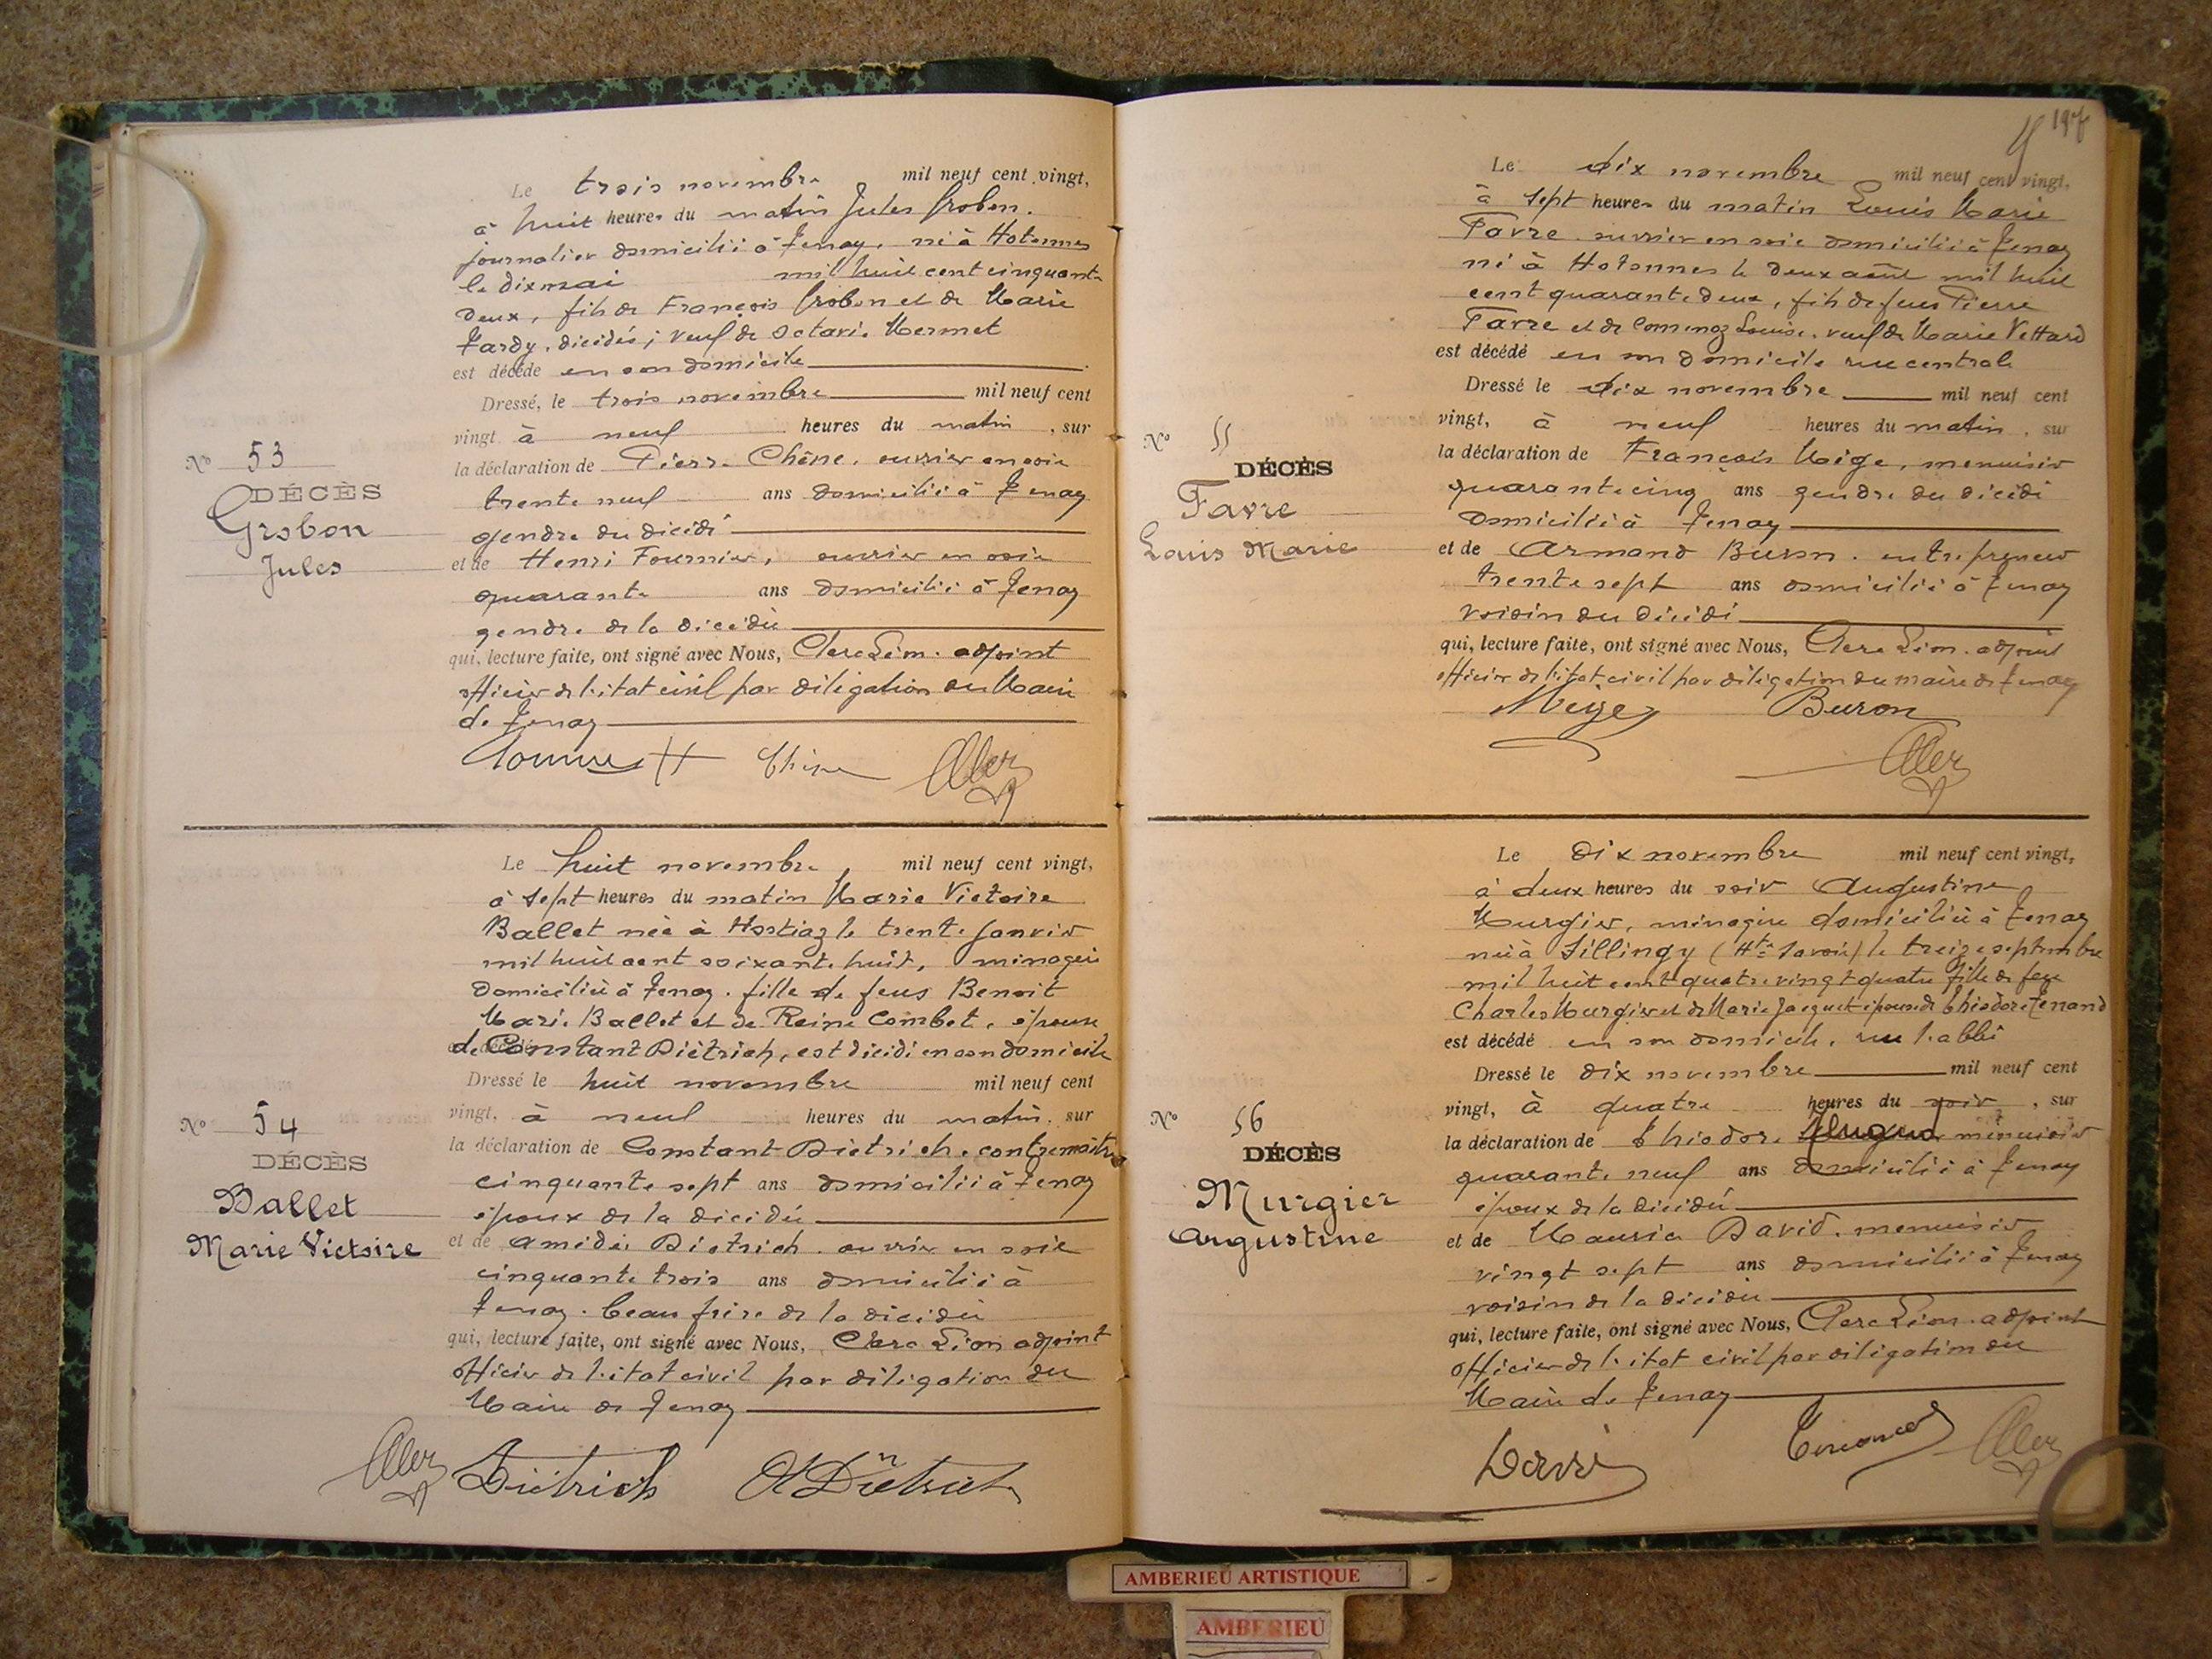 Le trois novembre mil neuf cent vingt,
à huit heures du matin Jules Grobon.
journalier domicilié à Tenay, né à Hotonnes
le dix mai mil huit cent cinquante
deux, fils de François Grobon et de Marie
Tardy, décédés ; veuf de Octavie Mermet
est décédé en son domicile
Dressé, le trois novembre mil neuf cent
vingt à neuf heures du matin, sur
la déclaration de Pierre Chêne, ouvrier en soie
trente neuf ans domicilié à Tenay
gendre du décédé
et de Henri Fournier, ouvrier en soie
quarante ans domicilié à Tenay
gendre de la décédée
qui, lecture faite, ont signé avec Nous, Clerc Léon. adjoint
officier de l'état civil par délégation du Maire
de Tenay
Chêne
No 53
DÉCÈS
Grobon
Jules
Le huit novembre mil neuf cent vingt,
à sept heures du matin Marie Victoire
Ballet née à Hostiaz le trente janvier
mil huit cent soixante huit, ménagère
domiciliée à Tenay. fille de feus Benoit
Marie Ballet et de Reine Combet, épouse
de Constant Diétrich, est décédé en son domicile
Dressé le huit novembre mil neuf cent
vingt, à neuf heures du matin, sur
la déclaration de Constant Dietrich, contremaître
cinquante sept ans domicilié à Tenay
époux de la décédée
et de Amédée Dietrich, ouvrier en soie
cinquante trois ans domicilié à
Tenay. beau frère de la décédée
qui, lecture faite, ont signé avec Nous, Clerc Léon adjoint
officier de l'état civil par délégation du
Maire de Tenay
Diétrich
Dietrich
No 54
DÉCÈS
Ballet
Marie Victoire
197
Le dix novembre mil neuf cent vingt,
à sept heures du matin Louis Marie
Favre. ouvrier en soie domicilié à Tenay
né à Hotonnes le deux août mil huit
cent quarante deux, fils de feus Pierre
Favre et de Louise, veuf de Marie Vettard
est décédé en son domicile rue centrale
Dressé le dix novembre mil neuf cent
vingt, à neuf heures du matin, sur
la déclaration de François Miège, menuisier
quarante cinq ans gendre du décédé
domicilié à Tenay
et de Armand Buron. entrepreneur
trente sept ans domicilié à Tenay
voisin du décédé
qui, lecture faite, ont signé avec Nous, Clerc Léon. adjoint
officier de l'état civil par délégation du maire de Tenay
Miège Buron
No 55
DÉCÈS
Favre
Louis Marie
Le dix novembre mil neuf cent vingt,
à deux heures du soir Augustine
Murgier, ménagère domiciliée à Tenay
née à Sillingy (Hte Savoie) le treize septembre
mil huit cent quatre vingt quatre fille de feus
Charles Murgier et de Marie Jacquet épouse de Théodore Tenand
est décédé en son domicile, rue l'abbé
Dressé le dix novembre mil neuf cent
vingt, à quatre heures du soir, sur
la déclaration de Théodore menuisier
quarante neuf ans domicilié à Tenay
époux de la décédée
et de Maurice David, menuisier
vingt sept ans domicilié à Tenay
voisin de la décédée
qui, lecture faite, ont signé avec Nous, Clerc Léon. adjoint
officier de l'état civil par délégation du
Maire de Tenay
David
No 56
DÉCÈS
Murgier
Augustine
AMBERIEU ARTISTIQUE
AMBERIEU